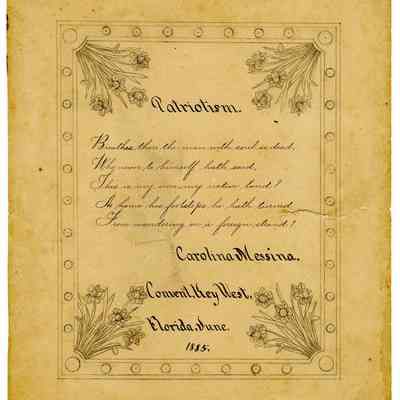 Patriotism.
Breathes there the man with soul so dead,
Who never to himself hath said,
This is my own my native land!
As home his fotsteps he hath turned
From wandering on a foreign strand!
Carolina Messina.
Convent, Key West,
Florida, June.
1885.